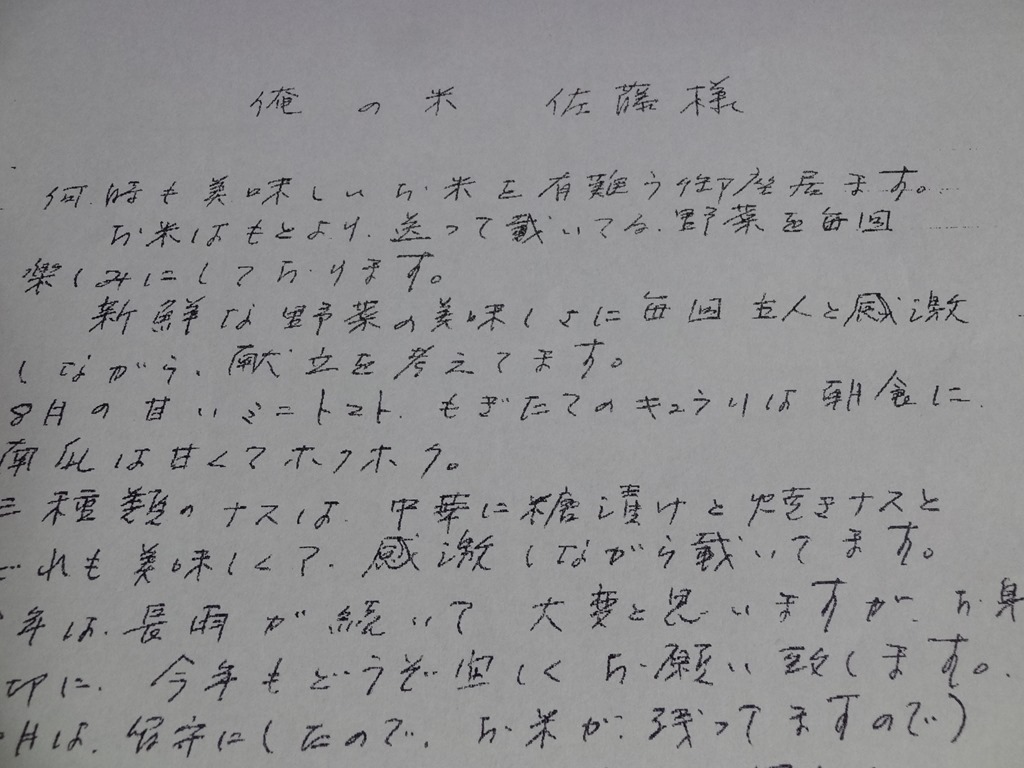 俺の米 佐藤様
何時も美味しいお米を有難う御座居ます。
お米はもとより、送って戴いてる、野菜を毎回
楽しみにしております。
新鮮な野菜の美味しさに毎回主人と感激
しながら、献立を考えてます。
8月の甘いミニトマト、もぎたてのキュウリは朝食に、
南瓜は甘くてホクホク。
三種類のナスは、中華に糠漬けと焼きナスと
どれも美味しくて、感激しながら戴いてます。
年は、長雨が続いて 大変と思いますが、お身
切に、今年もどうぞ宜しくお願い致します。
月は、留守にしたので、お米が残ってますので)